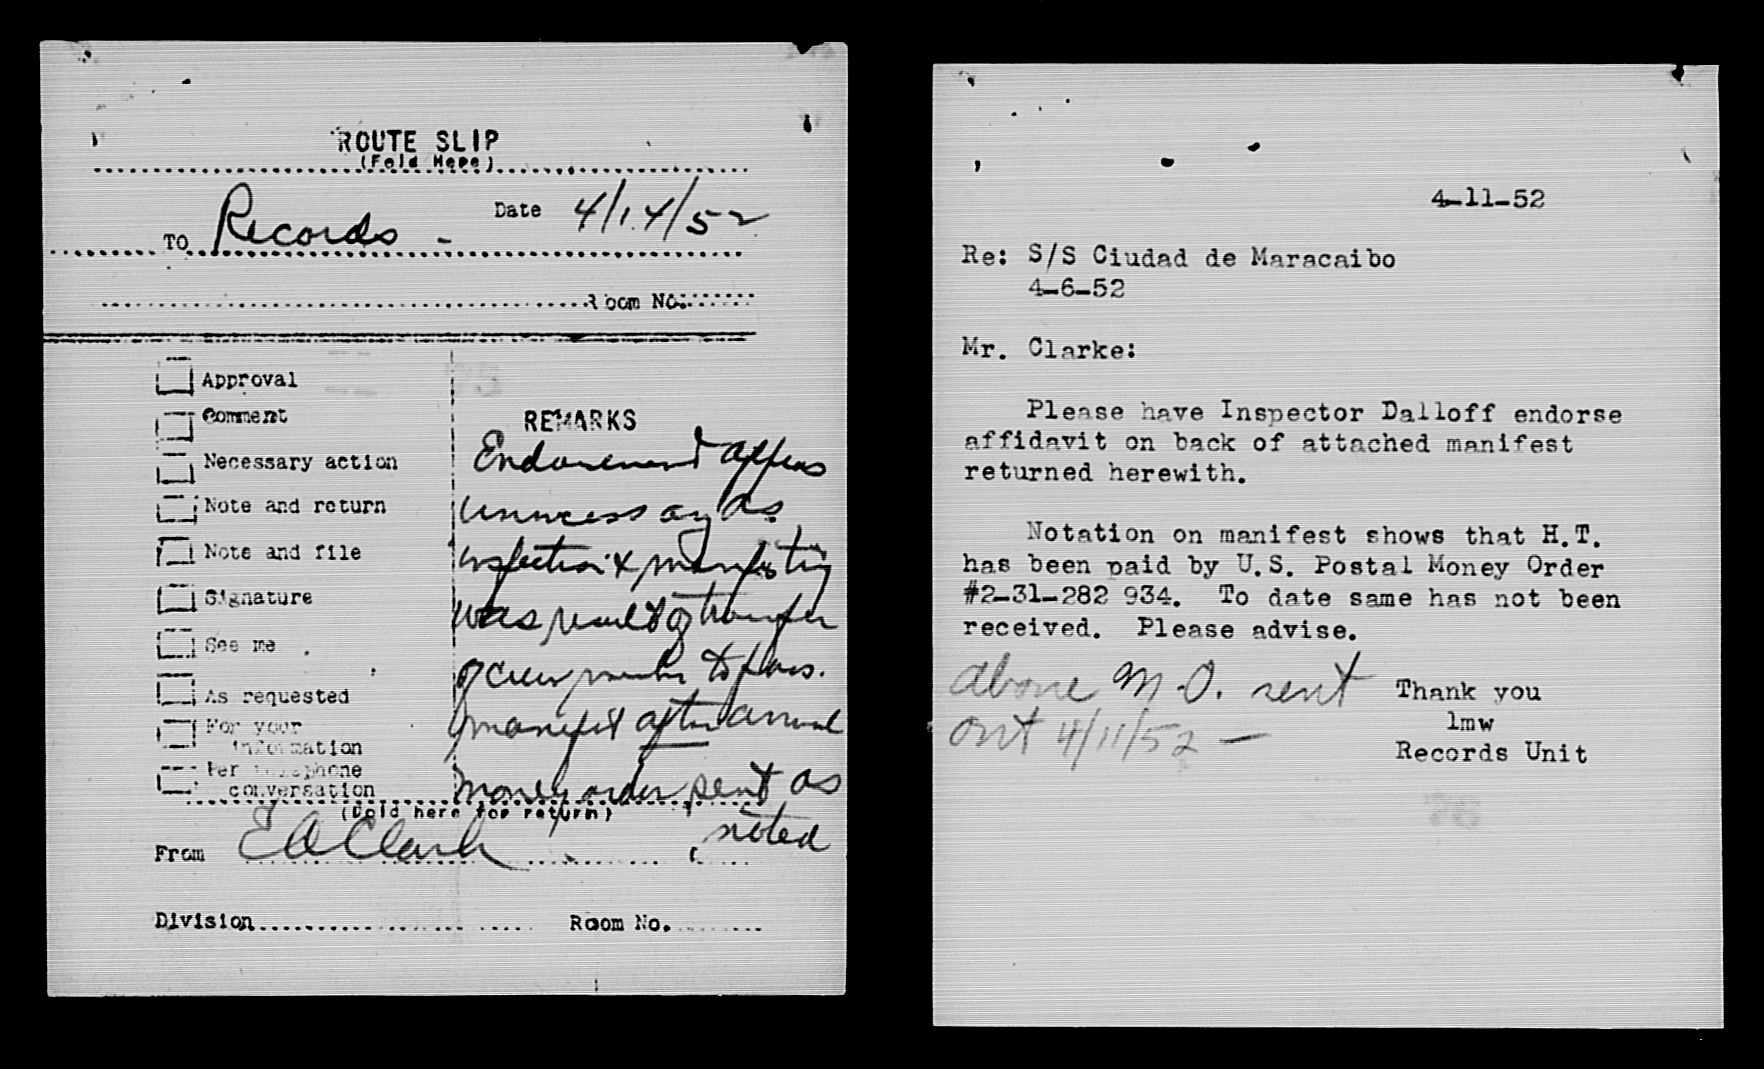 ROUTE SLIP
(Fold Here)
Date 4/14/52
TO Records -
Room No.
Approval
Comment
Necessary action
Note and return
Note and file
Signature
See me
As requested
For your
information
Per telephone
conversation
REMARKS
Endorsement appears
unnecessary as
inspection & manifesting
was result of transfer
of crew member to pass.
manifest after arrival
money order sent as
noted
(Fold here for return)
From E A Clark
Division
Room No.
4-11-52
Re: S/S Ciudad de Maracaibo
4-6-52
Mr. Clarke:
Please have Inspector Dalloff endorse
affidavit on back of attached manifest
returned herewith.
Notation on manifest shows that H.T.
has been paid by U.S. Postal Money Order
#2-31-282 934. To date same has not been
received. Please advise.
above M.O. sent
out 4/11/52 -
Thank you
lmw
Records Unit